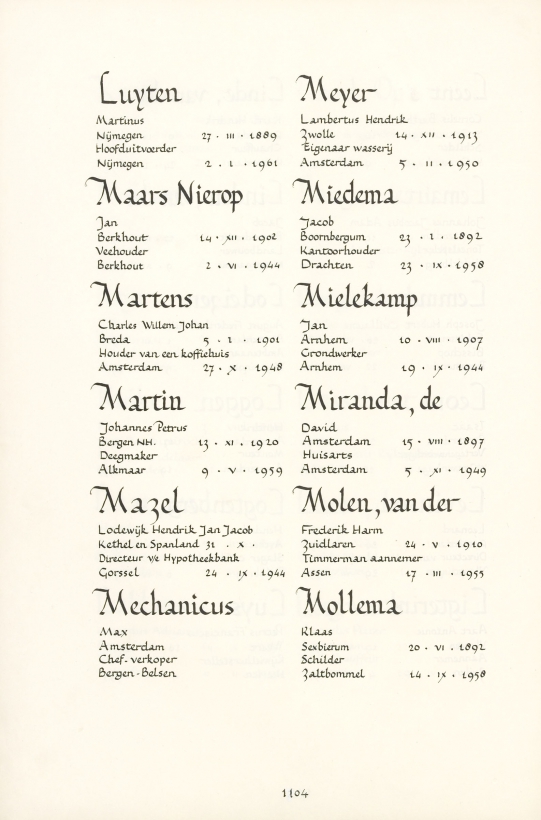 Luyten
Martinus
Nijmegen 27 · III · 1889
Hoofduitvoerder
Nijmegen 2 · 1 · 1961
Maars Nierop
Jan
Berkhout 14 · XII · 1902
Veehouder
Berkhout 2 · VI · 1944
Martens
Charles Willem Johan
Breda 5 · 1 · 1901
Houder van een koffiehuis
Amsterdam 27 · X · 1948
Martin
Johannes Petrus
Bergen NH. 13 · XI · 1920
Deegmaker
Alkmaar 9 · V · 1959
Mazel
Lodewijk Hendrik Jan Jacob
Kethel en Spanland 31 · X ·
Directeur v/e Hypotheekbank
Gorssel 24 · IX · 1944
Mechanicus
Max
Amsterdam
Chef-verkoper
Bergen-Belsen
Meyer
Lambertus Hendrik
Zwolle 14 · XII · 1913
Eigenaar wasserij
Amsterdam 5 · II · 1950
Miedema
Jacob
Boornbergum 23 · 1 · 1892
Kantoorhouder
Drachten 23 · IX · 1958
Mielekamp
Jan
Arnhem 10 · VIII · 1907
Grondwerker
Arnhem 19 · IX · 1944
Miranda, de
David
Amsterdam 15 · VIII · 1897
Huisarts
Amsterdam 5 · XI · 1949
Molen, van der
Frederik Harm
Zuidlaren 24 · V · 1910
Timmerman aannemer
Assen 17 · III · 1955
Mollema
Klaas
Sexbierum 20 · VI · 1892
Schilder
Zaltbommel 14 · IX · 1958
1104